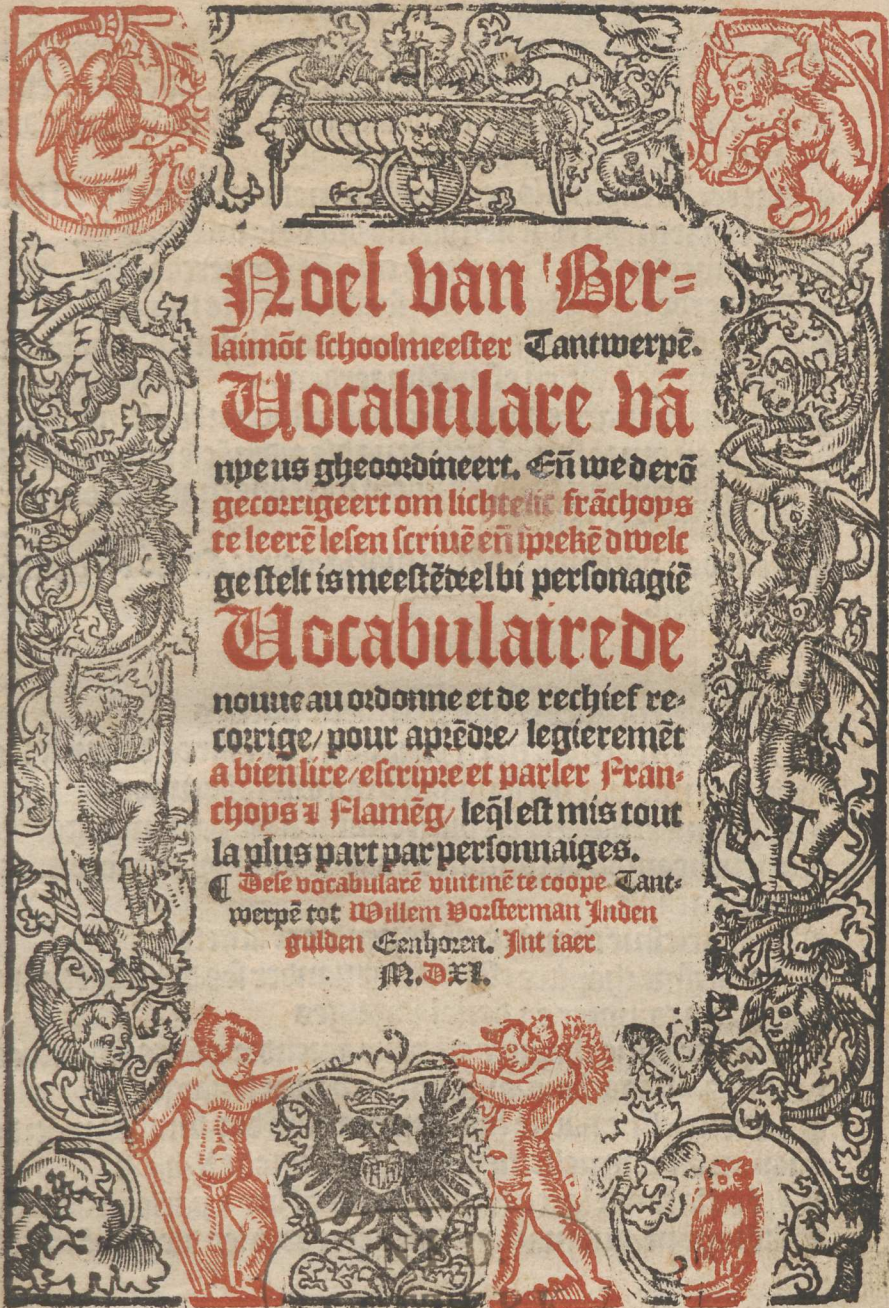 Noel van Ber=
laimõt schoolmeester Tantwerpẽ.
Vocabulare vã
nyeus gheoordineert. Eñ wederõ
gecorrigeert om lichtelic frãchoys
te leerẽ lesen scriuẽ eñ sprekẽ dwelc
gestelt is meestẽdeel bi personagiẽ
Vocabulaire de
nouueau ordonne et de rechief re-
corrige/ pour aprẽdre/ legieremẽt
a bien lire/ escripre et parler Fran-
choys ⁊ Flamẽg/ leq̃l est mis tout
la plus part par personnaiges.
¶ Dese vocabularẽ vintmẽ te coope Tant-
werpẽ tot Willem Vorsterman Inden
gulden Eenhoren. Int iaer
M.D.XI.